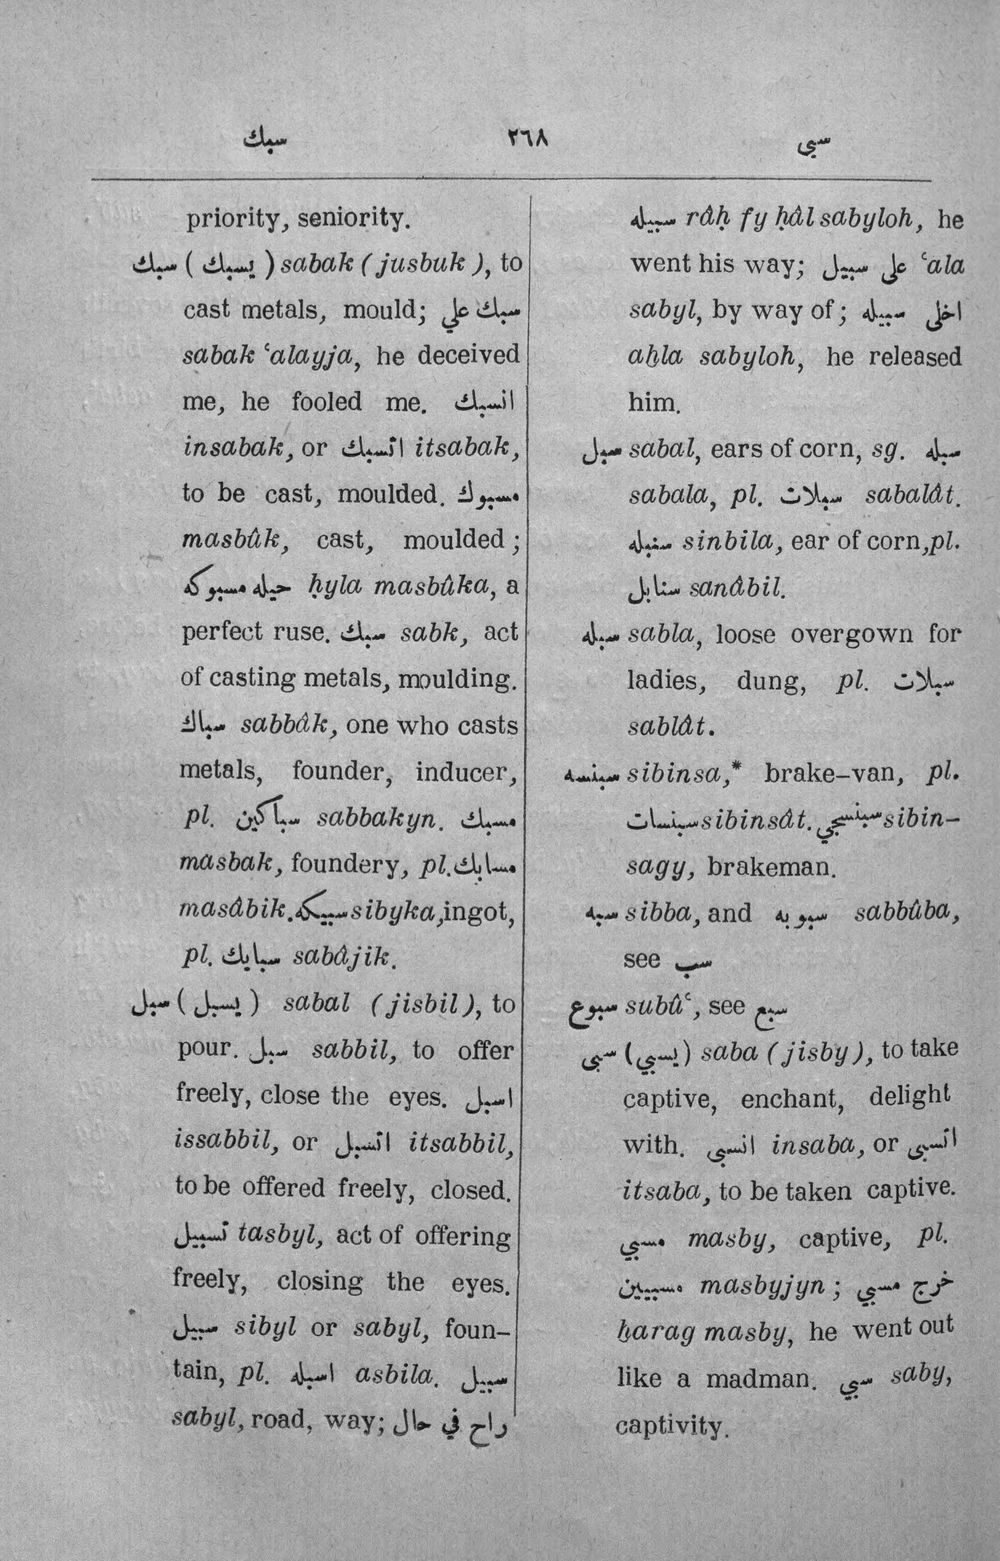 سبك ٢٦٨ سبى
priority, seniority.
سبك ( يسبك ) sabak (jusbuk), to
cast metals, mould; سبك علي
sabak ʿalayja, he deceived
me, he fooled me. انسبك
insabak, or اتسبك itsabak,
to be cast, moulded. مسبوك
masbûk, cast, moulded;
حيله مسبوكه ḥyla masbûka, a
perfect ruse. سبك sabk, act
of casting metals, moulding.
سباك sabbâk, one who casts
metals, founder, inducer,
pl. سباكين sabbakyn. مسبك
masbak, foundery, pl. مسابك
masâbik. سبيكه sibyka, ingot,
pl. سبايك sabâjik.
سبل ( يسبل ) sabal (jisbil), to
pour. سبل sabbil, to offer
freely, close the eyes. اسبل
issabbil, or اتسبل itsabbil,
to be offered freely, closed.
تسبيل tasbyl, act of offering
freely, closing the eyes.
سبيل sibyl or sabyl, foun–
tain, pl. اسبله asbila. سبيل
sabyl, road, way; راح في حال
سبيله râḥ fy ḥâl sabyloh, he
went his way; على سبيل ʿala
sabyl, by way of; اخلى سبيله
aḫla sabyloh, he released
him.
سبل sabal, ears of corn, sg. سبله
sabala, pl. سبلات sabalât.
سنبله sinbila, ear of corn, pl.
سنابل sanâbil.
سبله sabla, loose overgown for
ladies, dung, pl. سبلات
sablât.
سبنسه sibinsa,* brake–van, pl.
سبنسات sibinsât. سبنسجي sibin–
sagy, brakeman.
سبه sibba, and سبوبه sabbûba,
see سب
سبوع subûʿ, see سبع
سبى (يسبي) saba (jisby), to take
captive, enchant, delight
with. انسبى insaba, or اتسبى
itsaba, to be taken captive.
مسبي masby, captive, pl.
مسبيين masbyjyn; خرج مسبي
ḫarag masby, he went out
like a madman. سبي saby,
captivity.